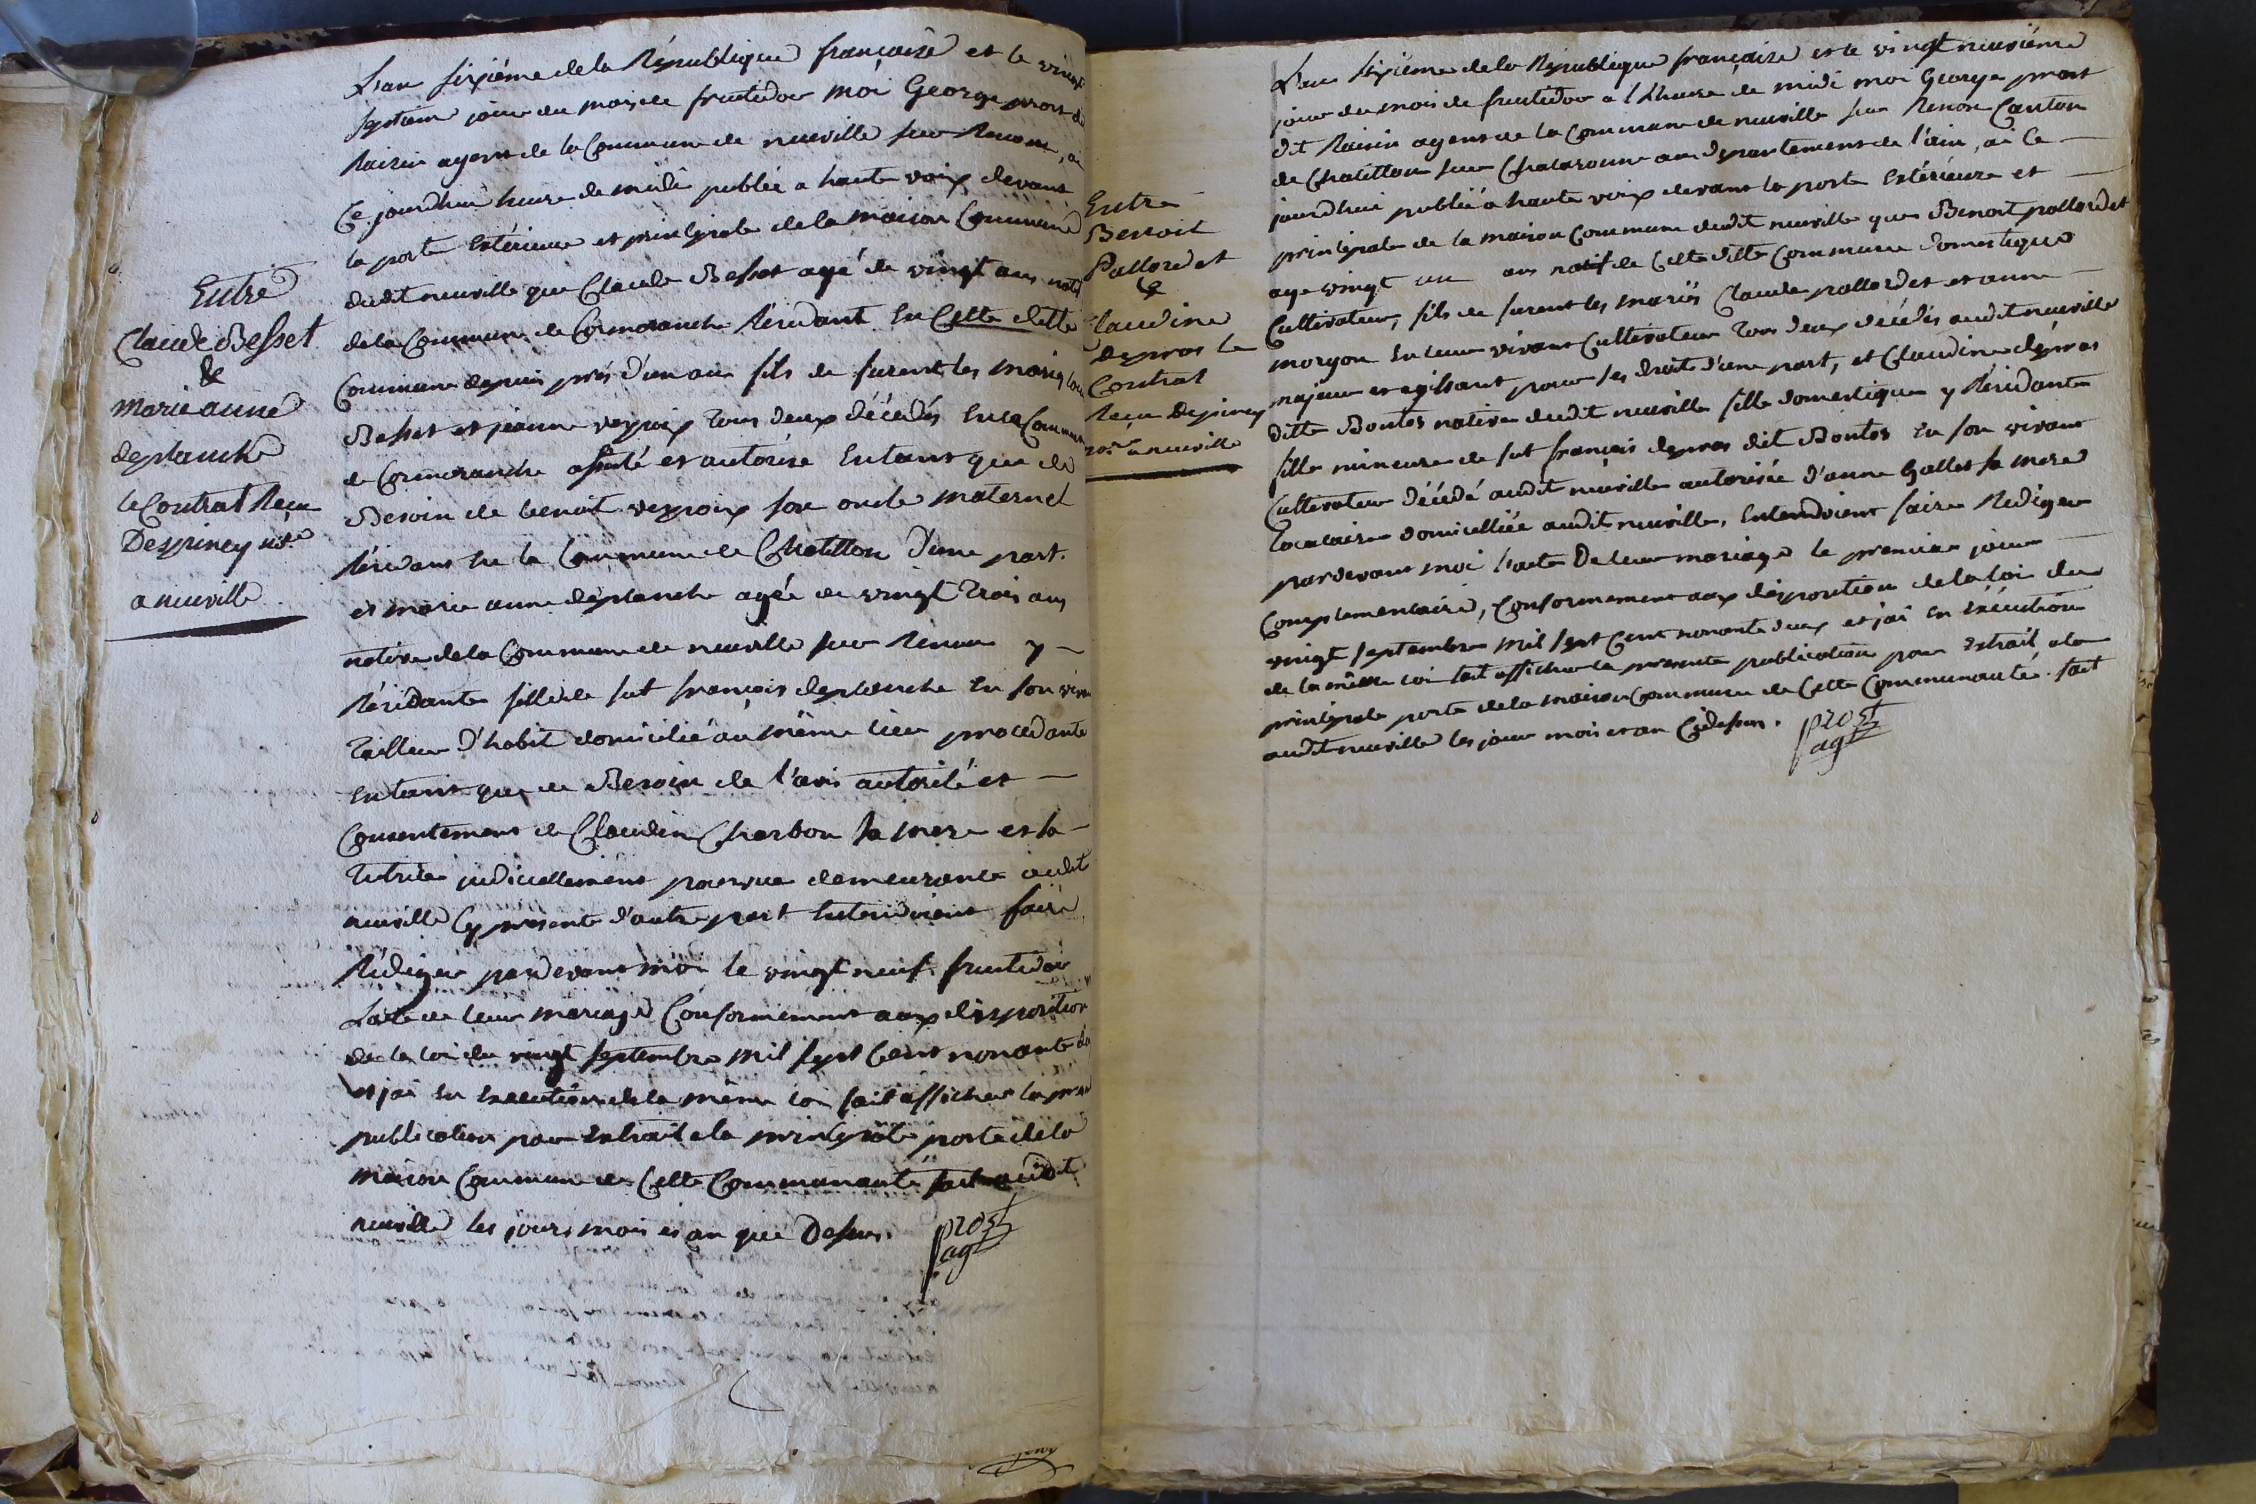 Entre
Claude Besset
&
marie anne
deplanche
le Contrat Reçu
Despiney n.re
a neuville
L'an sixiéme de la République françoise et le vingt
septieme jour du mois de fructidor moi George prost d
Raisin agent de la Commune de neuville sur Renom, ai
Ce jourdhui heure de midi publié a haute voix devant
la porte Extérieure et principale de la maison Commune
dudit neuville que Claude Besset agé de vingt ans natif
de la Commune de Cormoranche Résidant En Cette ditte
Commune depuis près d'un an fils de furent les mariés
Besset et jeanne veyroix tous deux décédés En la Commune
de Cormoranche assisté et autorisé Entant que de
Besoin de benoit veyroix son oncle maternel
Résidant En la Commune de Chatillon d'une part.
et marie anne deplanche agée de vingt trois ans
native de la Commune de neuville sur Renom y
Résidante fille de fut françois deplanche En son viva
tailleur d'habit domicilié au même lieu procédante
Entant que de Besoin de l'avis autorité et
Consentement de Claudine Charbon sa mere et sa
tutrice judiciellement pourvue demeurante audit
neuville Cy presente d'autre part Entendoient faire
Rédiger pardevant moi le vingt neuf fructidor
L'acte de leur mariage Conformément aux disposition
de la loi du vingt septembre mil sept Cent nonante d
et jai En Exécution de la même loi fait afficher la pres
publication par Extrait a la principale porte de la
maison Commune de Cette Communauté fait audit
neuville les jours mois et an que Dessus.
prost
ag
Entre
Benoit
Pallordet
&
Claudine
depras le
Contrat
Reçu Despiney
no.re a neuville
L'an sixieme de la République françoise et le vingt neuviéme
jour du mois de fructidor a l'heure de midi moi George prost
dit Raisin agent de la Commune de neuville sur Renom Canton
de Chatillon sur Chalaronne au département de l'ain, ai Ce
jourdhui publié a haute voix devant la porte Extérieure et
principale de la maison Commune dudit neuville que Benoit pallordet
age vingt un ans natif de Cette ditte Commune domestique
Cultivateur, fils de furent les mariés Claude pallordet et anne
morgon En leur vivant Cultivateur tous deux décédés audit neuville
majeur et agissant pour ses droits d'une part, et Claudine dépras
ditte Bontos native dudit neuville fille domestique y Résidante
fille mineure de fut françois depras dit Bontos En son vivant
Cultivateur décédé audit neuville autorisée d'anne Gallet sa mere
Locataire domicilliée audit neuville, Entendoient faire Rédiger
pardevant moi l'acte De leur mariage le premier jour
Complementaire, Conformement aux disposition de la loi du
vingt septembre mil sept Cent nonante deux et jai En Exécution
de la même loi fait afficher la presente publication par Extrait a la
principale porte de la maison Commune de Cette Communauté. fait
audit neuville les jour mois et an Cidessus.
prost
ag